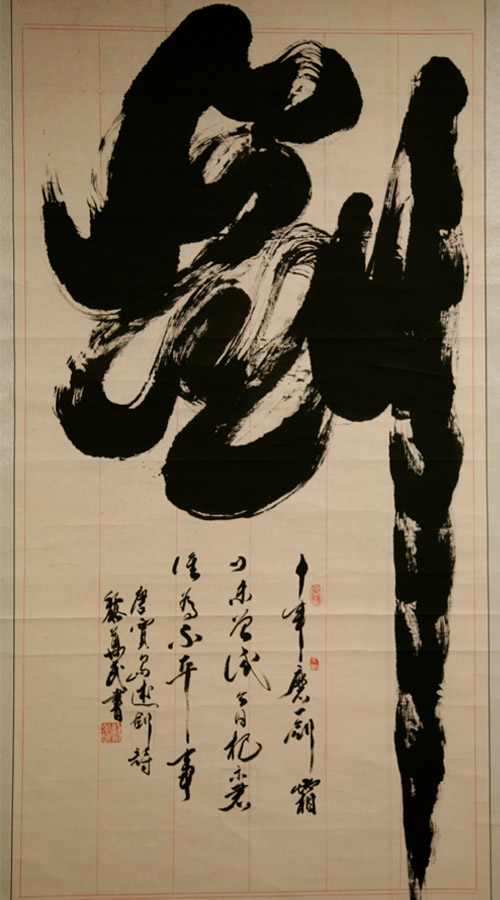 劍
十年磨一劍霜
刃未曾試今日把示君
誰為不平事
唐賈島述劍詩
黎萬民書